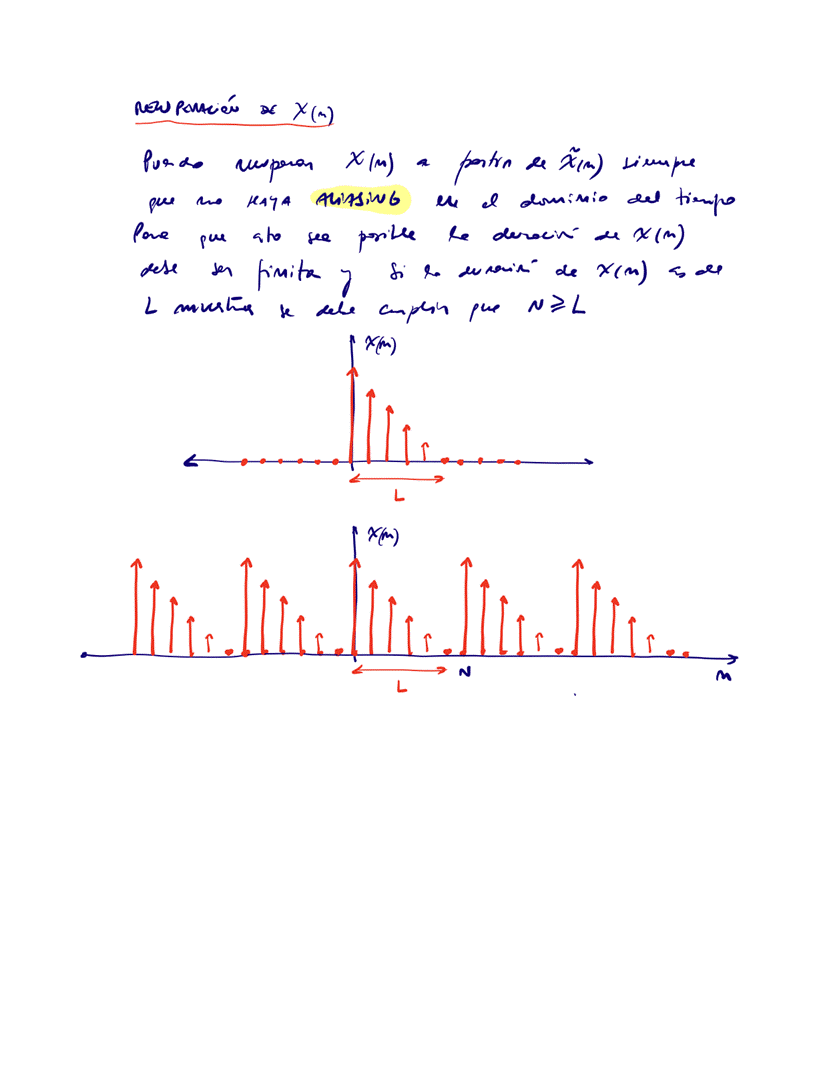 RECUPERACIÓN DE X(n)
Puedo recuperar X(n) a partir de x̃(n) siempre
que no HAYA ALIASING en el dominio del tiempo
Para que esto sea posible la duración de X(n)
debe ser finita y si la duración de X(n) es de
L muestras se debe cumplir que N ≥ L
X(n)
L
X(n)
L
N
n